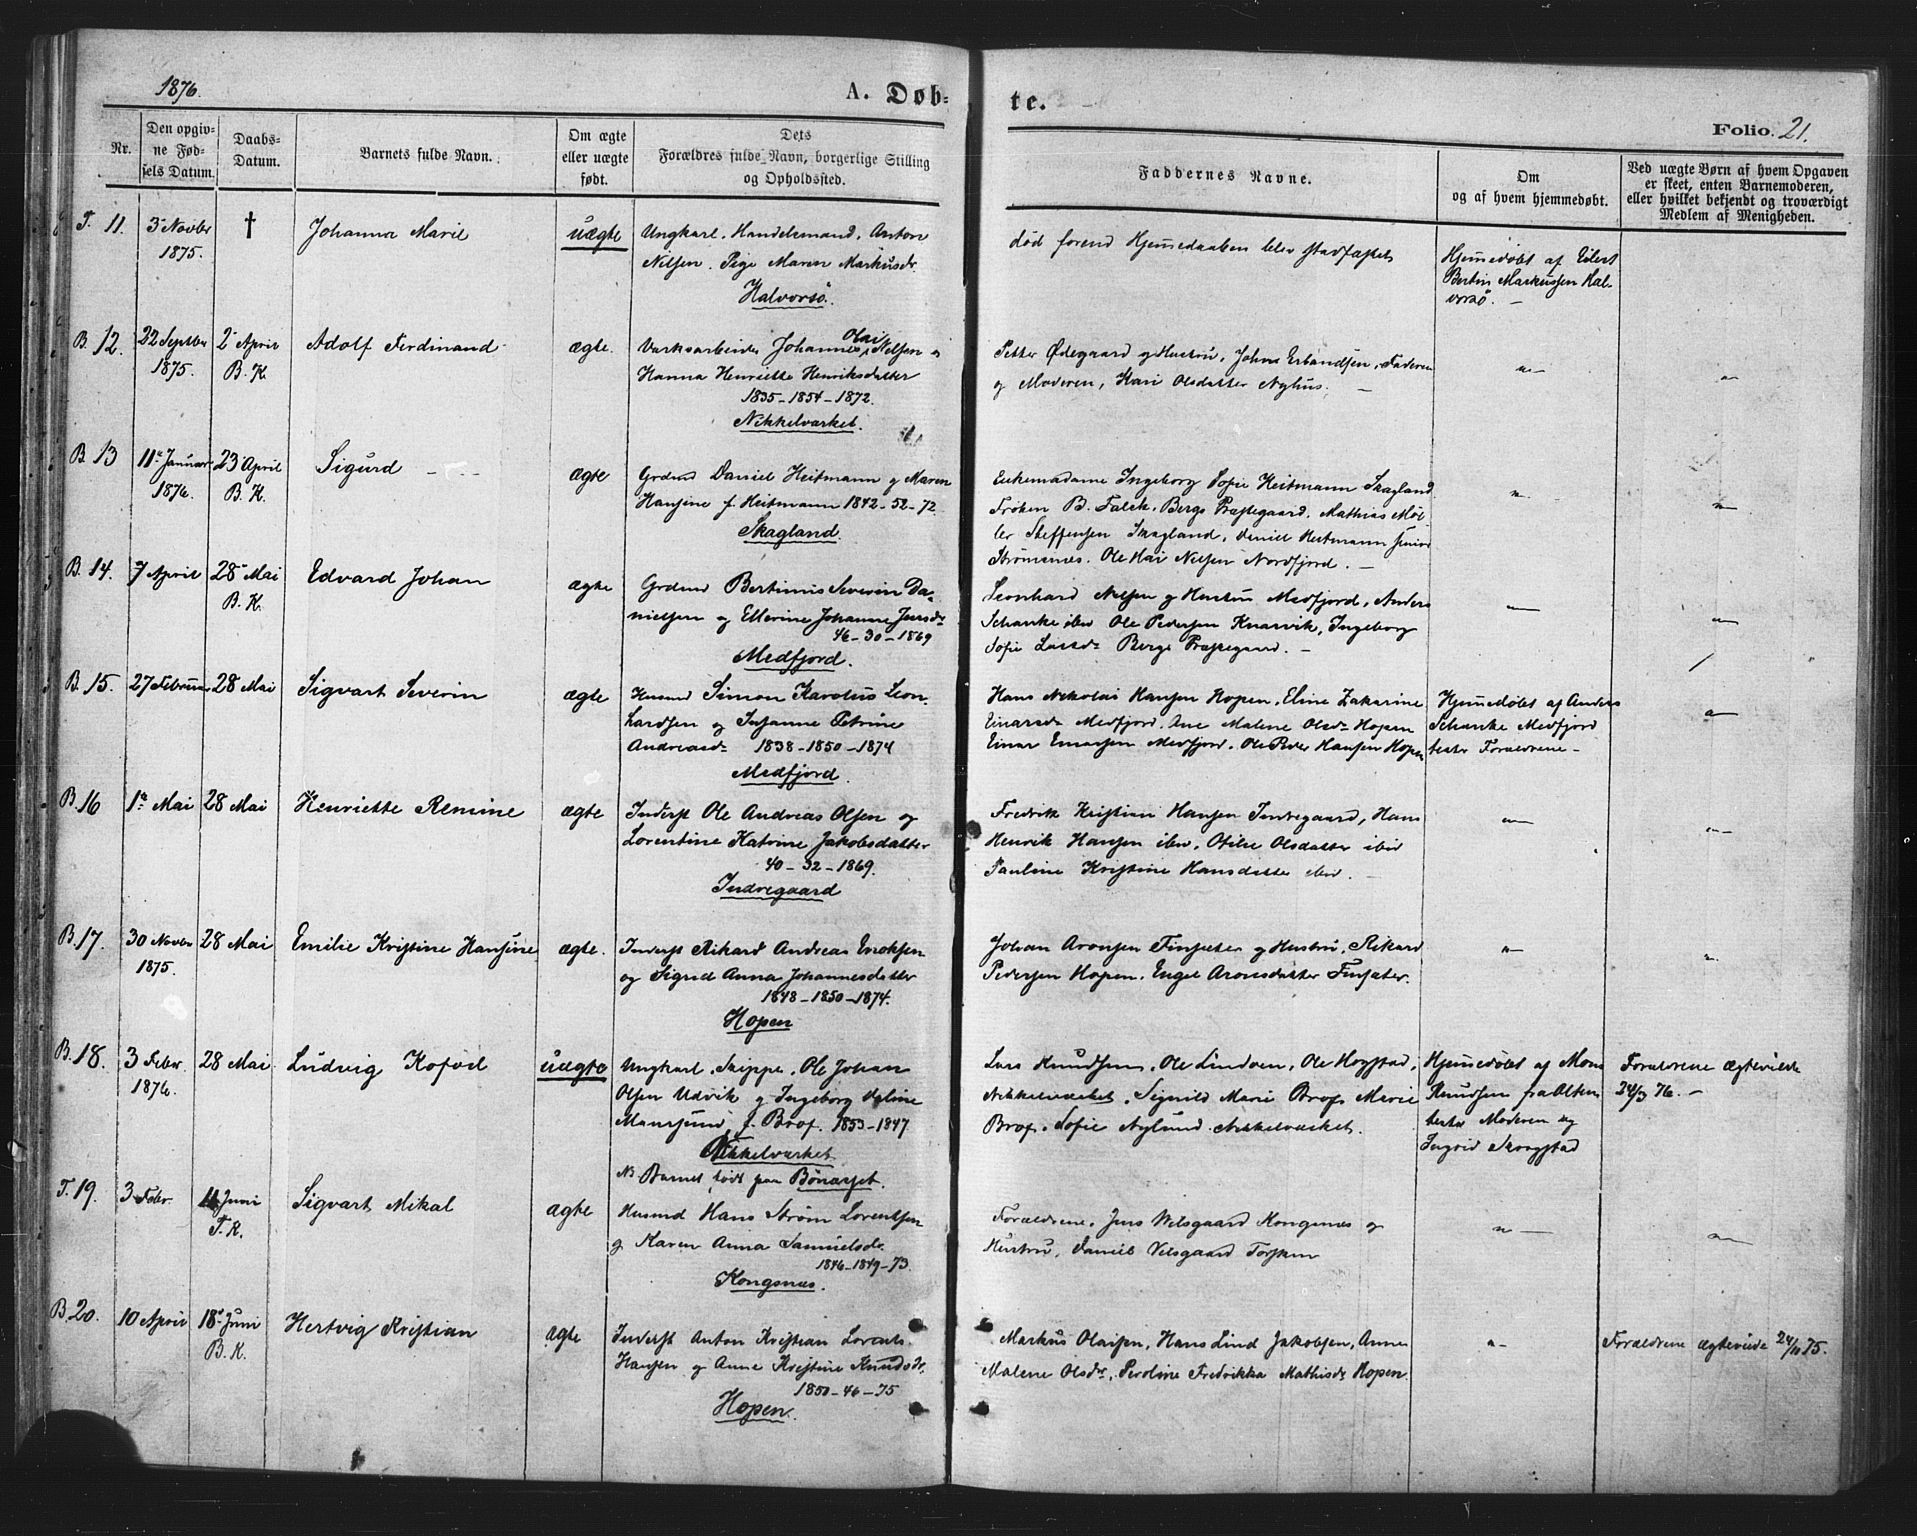 1876.
A. Døb-
te.
Folio. 21.
Nr.
Den opgiv-
ne Fød-
sels Datum.
Daabs-
Datum.
Barnets fulde Navn.
Om ægte
eller uægte
født.
Dets
Forældres fulde Navn, borgerlige Stilling
og Opholdssted.
Faddernes Navne.
Om
og af hvem hjemmedøbt.
Ved uægte Børn af hvem Opgaven
er skeet, enten Barnemoderen,
eller hvilket bekjendt og troværdigt
Medlem af Menigheden.
T. 11. 3 Novbr † Johanna Marie uægte Ungkarl. Handelsmand. Anton død forend Hjemedaaben blev stadfæstet Hjemedøbt af Eilert
1875. Nilsen. Pige Maren Markusdr. Bertin Markussen Hal-
Halvorsö. vorsö. –
B. 12. 22 Septbr 2 April Adolf Ferdinand ægte. Værksarbeider Johannes Olai Nilsen og Petter Ødegaard og Hustru, Johan Erlandsen, Faderen
1875. B. K. Hanna Henriette Henriksdatter og Moderen, Kari Olsdatter Nyhus. –
1835 – 1854 – 1872.
Nikkelværket.
B. 13 11te Januar 23 April Sigurd ægte Grdmd Daniel Heitmann og Maren Enkemadame Ingeborg Sofie Heitmann Skagland
1876. B. K. Hansine f. Heitmann 1842 – 52 – 72. Frøken B. Falch. Bergs Præstegaard. Mathias Møl-
Skagland. ler Steffensen Skagland, Daniel Heitmann Junior
Strømsnes. Ole Hai Nilsen Nordfjord. –
B. 14. 7 April 28 Mai Edvard Johan ægte Grdmd Bertinius Severin Da- Leonhard Nilsen og Hustru Medfjord, Anders
B. K. nielsen og Ellerine Johanne Jensdr Schanke iber Ole Pedersen Knarvik, Ingeborg
46 – 30 – 1869 Sofie Larsdr Bergs Præstegaard. –
Medfjord.
B. 15. 27 Februar 28 Mai Sigvart Severin ægte Husmd Simon Karolus Leon- Hans Nikolai Hansen Hopen, Eline Zakarine Hjemmedøbt af Anders
hardsen og Susanne Petrine Einarsdr Medfjord, Ane Malene Olsdr Hopen Schanke Medfjord
Andreasdr 1838 – 1850 – 1874 Einar Einarsen Medfjord. Ole Peder Hansen Hopen testes Forældrene –
Medfjord
B. 16 1te Mai 28 Mai Henriette Remine ægte Inderst Ole Andreas Olsen og Fredrik Kristian Hansen Indregaard, Hans
Lorentine Katrine Jakobsdatter Henrik Hansen iber, Otilie Olsdatter ibid
40 – 32 – 1869. Pauline Kristine Hansdatter ibid. –
Indregaard
B. 17. 30 Novbr 28 Mai Emilie Kristine Hansine ægte. Inderst Rikard Andreas Enoksen Johan Aronsen Finsæter og Hustru, Rikard
1875. og Sigrid Anna Johannesdatter Pedersen Hopen. Engel Aronsdatter Finsæter.
1848 – 1850 – 1874.
Hopen
B. 18. 3 Febr 28 Mai Ludvig Kofod uægte Ungkarl. Skipper Ole Johan Lars Knudsen, Ole Lindven, Ole Hogstad, Hjemedøbt af Mons Forældrene ægteviede
1876. Olsen Udvik og Ingeborg Oline Nikkelværket. Signild Marie Brox Marie Knudsen fra Alten 24/3 76. –
Mansjund f. Brox. 1853 – 1847 Brox. Sofie Nylund Nikkelværket. testes Moderen og
Nikkelværket Ingrid Skogstad
NB Barnet født paa Bönaaset.
T. 19. 3 Febr. 11 Juni Sigvart Mikal ægte Husmd Hans Strøm Lorentsen Forældrene, Jens Velsgaard Kongsnæs og
T. K. og Karen Anna Samuelsdr. Hustru, Daniel Velsgaard Torsken
1846 – 1849 – 73.
Kongsnæs.
B. 20. 10 April 18 Juni Hertvig Kristian ægte Inderst Anton Kristian Lorents Markus Olaisen, Hans Lind Jakobsen, Anne Forældrene ægteviede 24/11 75.
B. K. Hansen og Anne Kristine Knudsdr. Malene Olsdr, Peroline Fredrikka Mathisdr Hopen.
1850 – 46 – 75
Hopen.